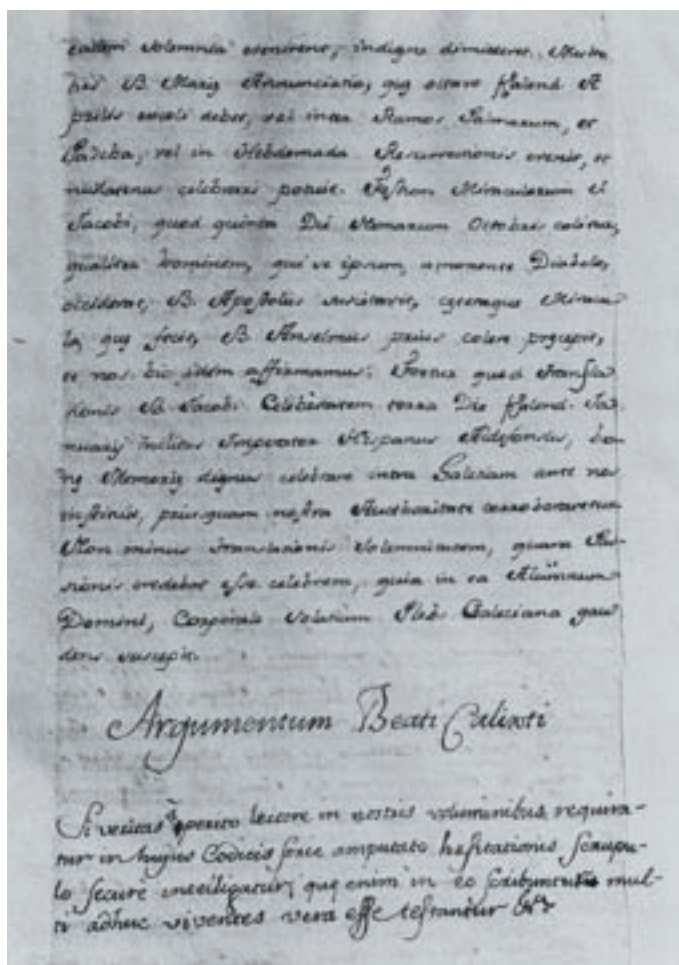 solemnia evenirent, indigne dimitteret.
B. Marię Annunciatio, quę octavo Kalend A
prilis coli debet, vel intra Ramos Palmarum, et
Pascha, vel in Hebdomada Resurrectionis evenit, et
nullatenus celebrari potuit. Festum Miraculorum
Jacobi, quod quinta Die Nonarum Octobris colitur,
qualiter hominem, qui se ipsum, amonente Diabolo,
occiderat, B. Apostolus suscitavit, cęteraque Miracu
la, quę fecit, B. Anselmus prius colere pręcepit,
et nos hic idem affirmamus. quod Transla
tionis B. Jacobi Celebritatem Die Kalend. Ja
nuarij inclitus Imperator Hispanus Adefonsus, bo
nę Memorię dignus celebrare intra Galeciam ante nos
instituit, priusquam nostra Authoritate corroboraretur
Non minus translationis solemnitatem, quam Pas
sionis credebat esse celebrem, quia in ea Alumnum
Domini, Corporale solatium Plebs Galeciana gau
dens suscepit.
Argumentum Beati Calixti
Si veritas perito lectore in nostris voluminibus requira-
tur in hujus Codicis serie amputato hęsitationis scrupu-
lo secure intelligatur, quę enim in eo scribuntur mul-
ti adhuc viventes vera esse testantur